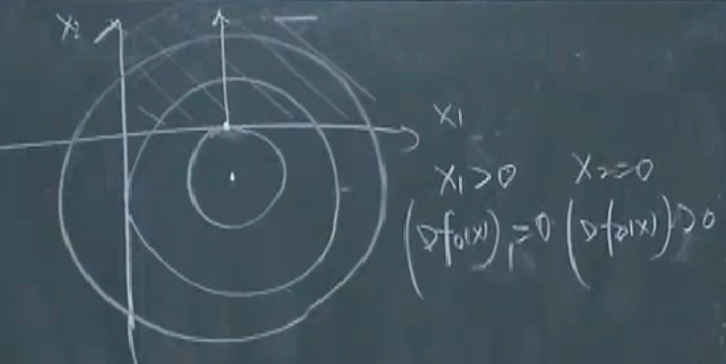 x₂
x₁
x₁>0 x₂=0
(∇f₀(x))₁=0 (∇f₀(x))>0